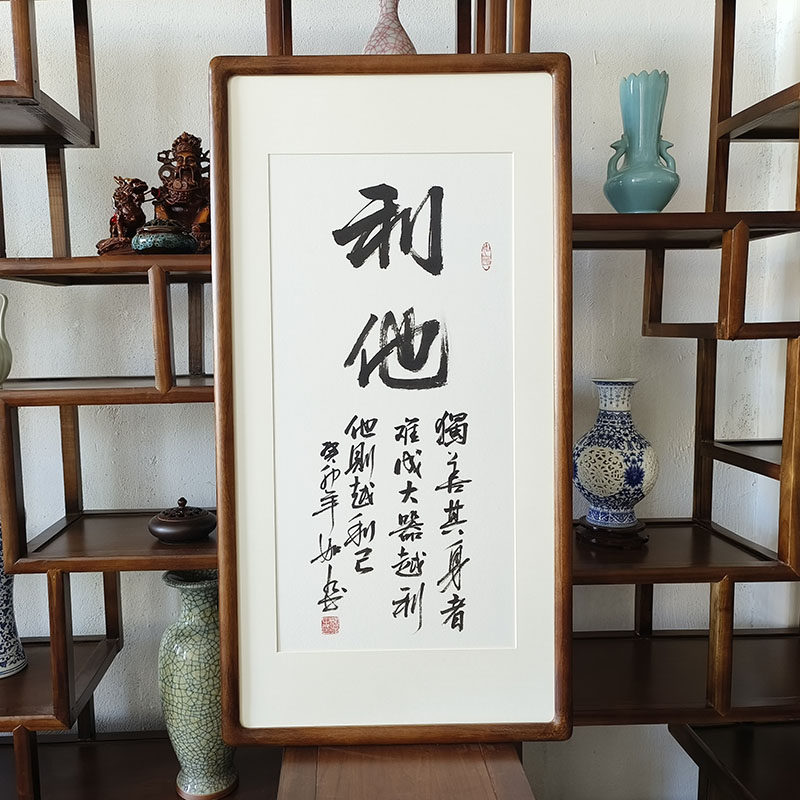 利他
獨善其身者
难成大器越利
他则越利己
癸卯年如